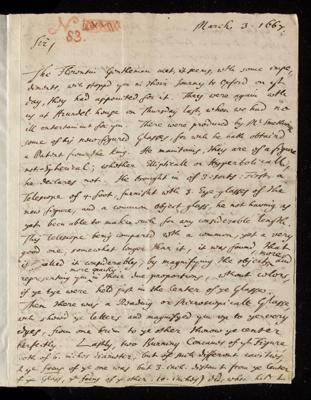 March 3. 1667.
83.
Sir,
The Florentin Gentlemen met, it seems, with some impe-
diments, wch stopped ym in their Journey to Oxford on yt
day, they had appointed for it. They were again with
us at Arundel house on Thursday last, when we had no
ill entertainmt for ym. There were produced by Mr Smethwick
some of his new figured Glasses, for wch he hath obtaind
a Patent from the King. He maintains, they are of a figure
not-Spherical; whether Elliptical or Hyperbolicall,
he declares not. He brought in of 3. sorts: First, a
Telescope of 4 foot, furnisht with 3. Eye-glasses of the
new figure, and a common object glass, he not having as
yet been able to make such for any considerable length.
This Telescope being compared with a common, yet a very
good one, somewhat longer than it, it was found, that
it excelled it considerably, by magnifying the object, and
representing ym in their due proportions, without colors
more
if ye eye were held just in the center of ye Glasses.
Then there was a Reading or Microscopicall Glasse
wch shewed ye letters and magnified ym up to ye very
edges, from one brim to ye other through ye center
perfectly. Lastly, two Burning Concaves of ys Figure
both of 6. inches diameter, but of different cavities,
ye focus of ye one was but 3. inch. distant from ye center
of ye Glass, ye focus of ye other 10. inches) did, when